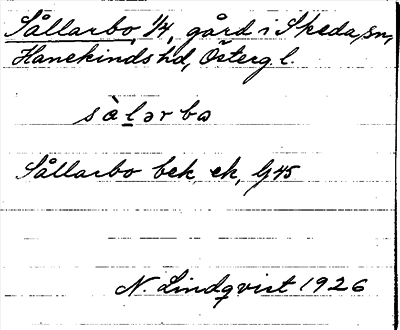 Sållarbo 1/4, gård i Skeda sn,
Hanekinds hd, Östergl.
sàlərbo
Sållarbo bek. ek. G 45
N. Lindqvist 1926